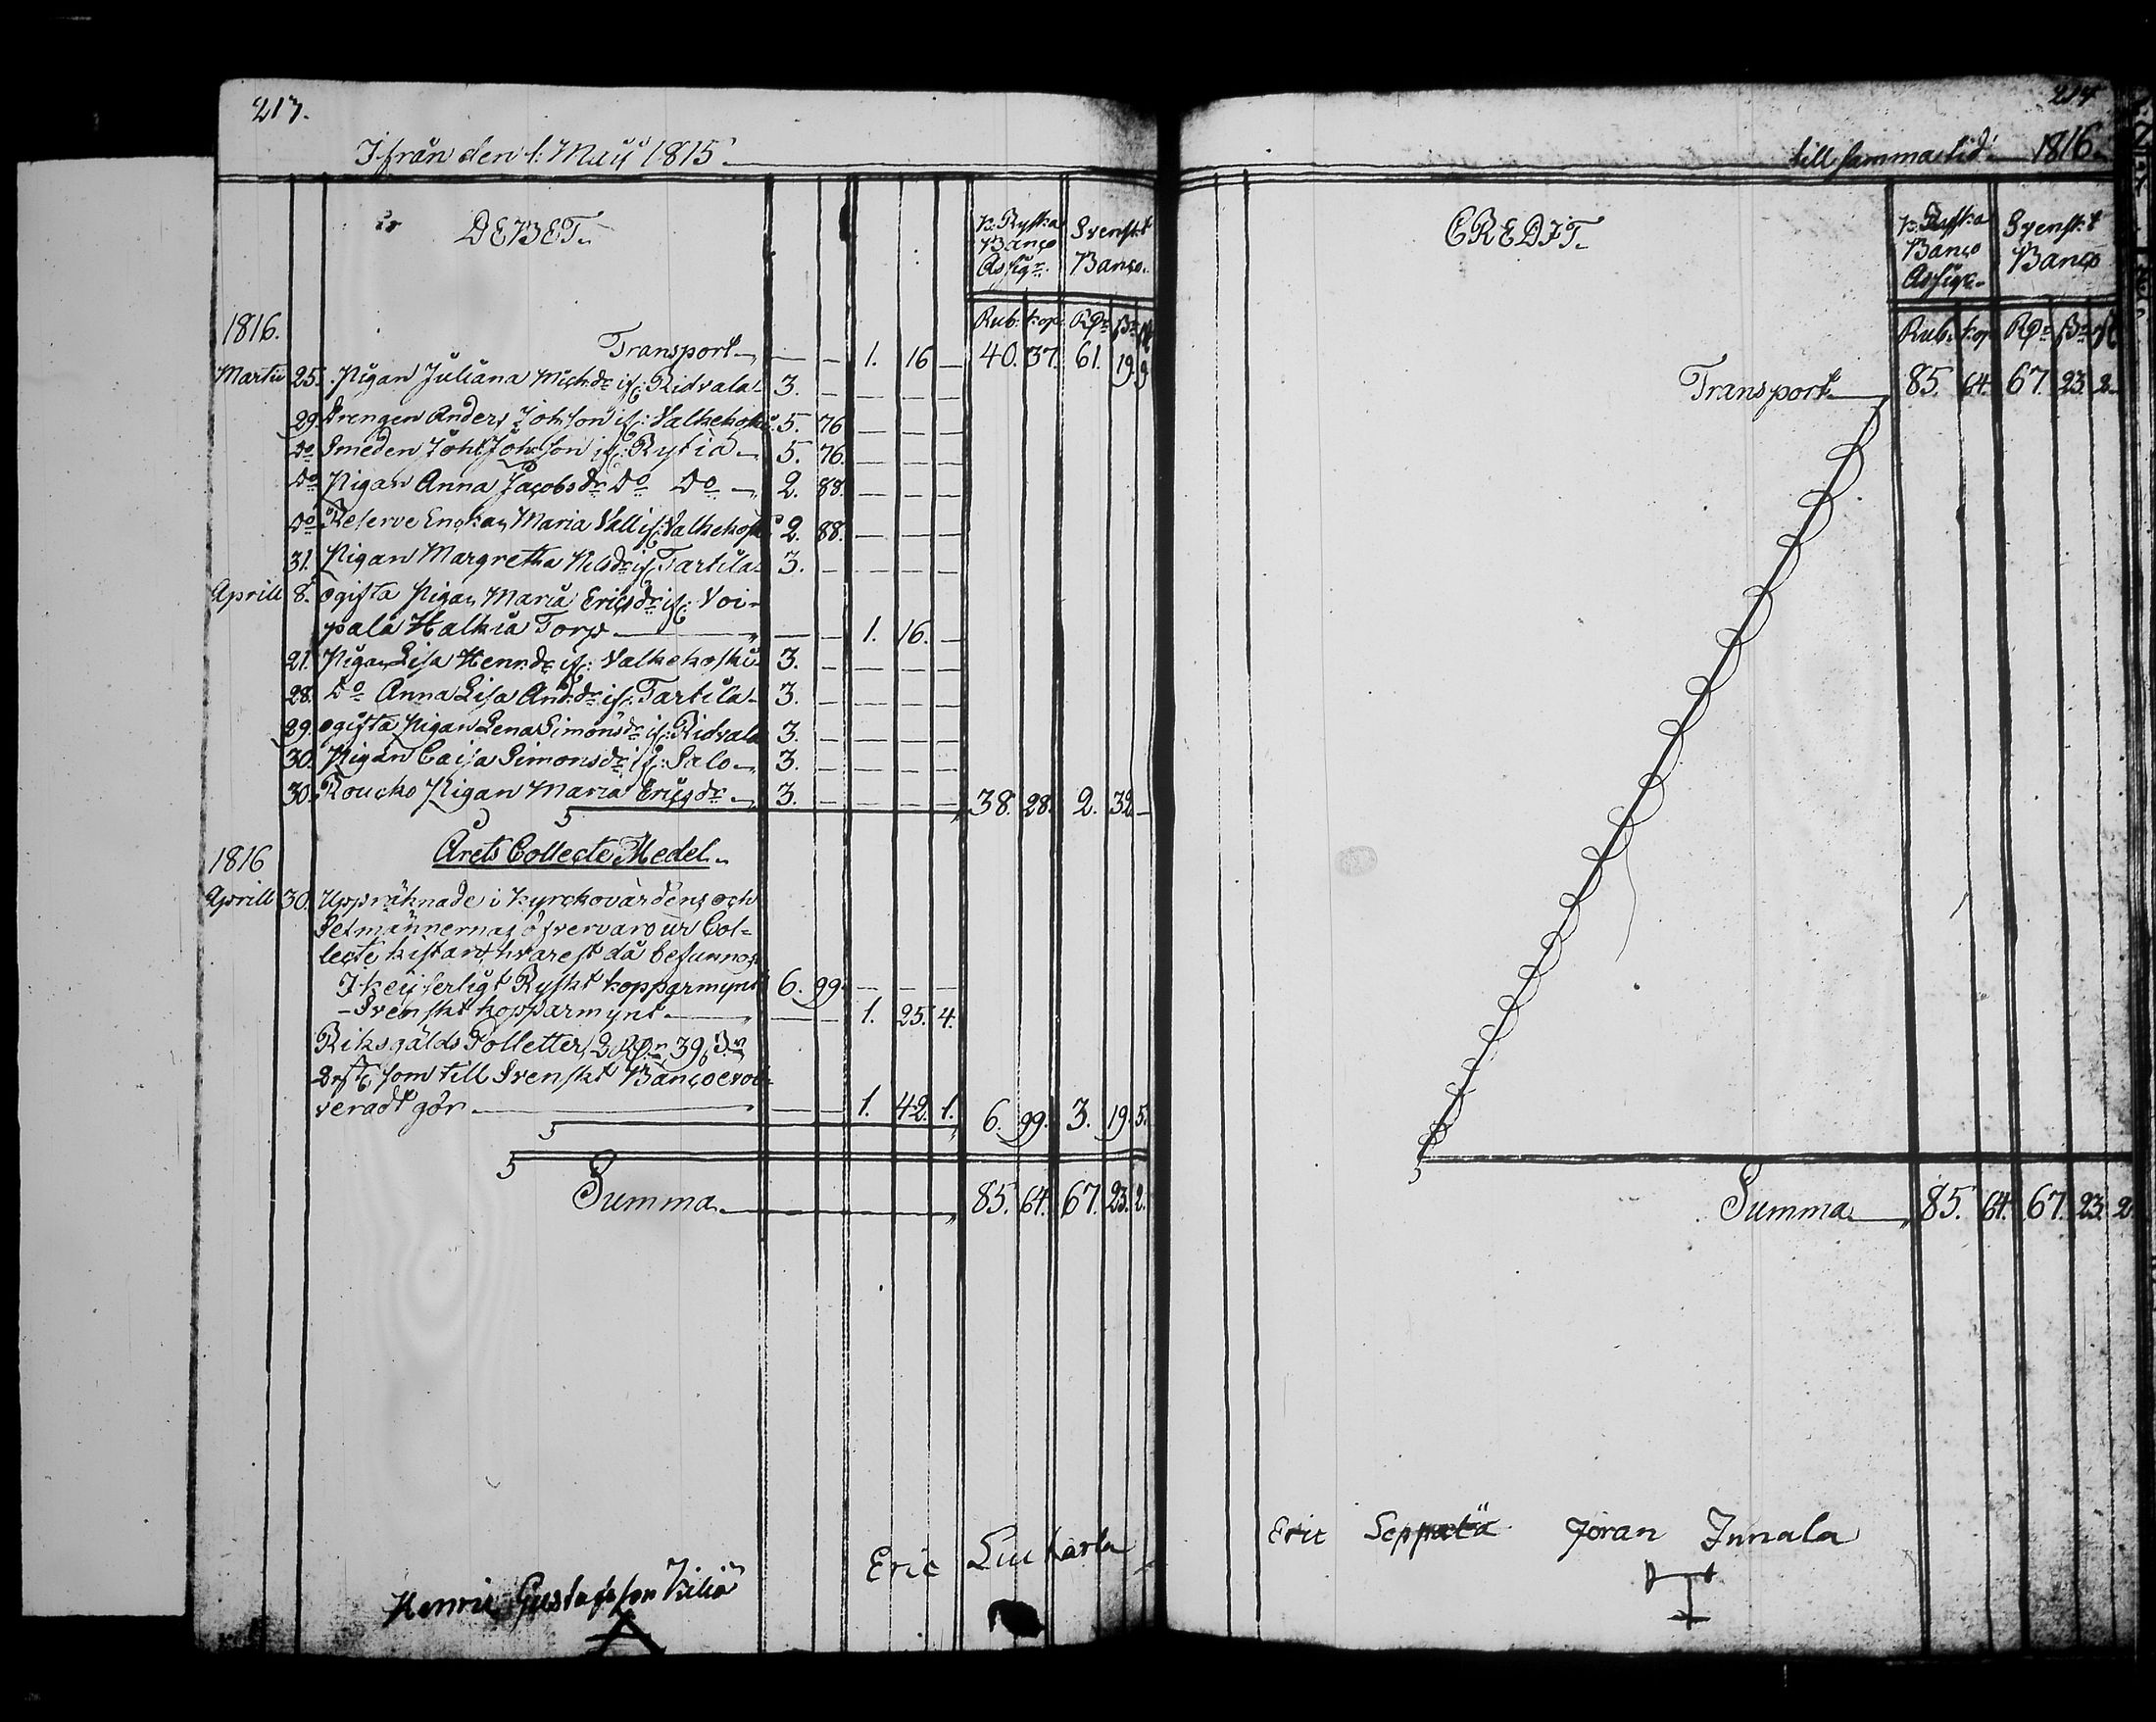 213.
Ifrån den 1. Maÿ 1815.
DEBET.
K. Ryska Svenskt
Banco Banco.
Assigr.
Rub. kop. Rdr ßr rst
1816.
Transport 1. 16 40. 37. 61. 19. 9
Martii 25. Pigan Juliana Michdr if: Ridvala 3.
29. Drengen Anders Johsson if: Valkekoski 5. 76
Do Smeden Joh: Johsson if: Rytiä 5. 76.
Do Pigan Anna Jacobsdr Do Do 2. 88.
Do Reserve Enckan Maria Vall if: Valkekoski 2. 88.
31. Pigan Margretha Nilsdr if: Tartila 3.
Aprill 8. ogifta Pigan Maria Ericsdr if: Voi-
pala Halkia Torp 1. 16.
21. Pigan Lisa Henr.dr if: Valkekoski 3.
28. Do Anna Lisa And.dr if: Tartila 3.
29. ogifta Pigan Lena Simonsdr if: Ridvala 3.
30. Pigan Caisa Simonsdr if: Salo 3.
30. Roucko Pigan Maria Ericsdr 3. 38. 28. 2. 32.
1816
Årets Collecte Medel.
Aprill 30. Uppräknade i Kyrckovärdens och
Sexmännernas öfvervaro ur Col-
lecte kistan, hvarest då befunnos
I keijserligt Ryskt kopparmynt 6. 99.
- Svenskt kopparmynt 1. 25. 4.
Riksgälds Polletter 2 Rdr 39 ßr
2 rst, som till Svenskt Banco
veradt gör 1. 42. 1. 6. 99. 3. 19. 5.
Summa 85. 64. 67. 23. 2.
Henric Gustafsson Kiliä
Eric
214
till samma tid 1816.
CREDIT.
K. Ryska Svenskt
Banco Banco
Assigr.
Rub. kop. Rdr ßr rst
Transport 85. 64. 67. 23. 2
Summa 85. 64. 67. 23. 2
Eric Seppälä Jöran Innala